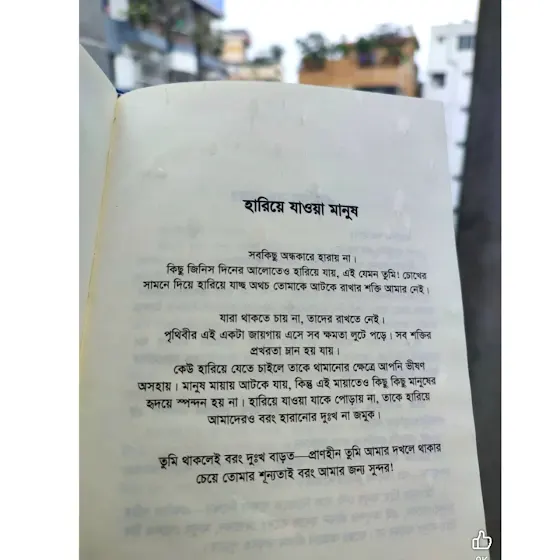 হারিয়ে যাওয়া মানুষ
সবকিছু অন্ধকারে হারায় না।
কিছু জিনিস দিনের আলোতেও হারিয়ে যায়, এই যেমন তুমি! চোখের
সামনে দিয়ে হারিয়ে যাচ্ছ অথচ তোমাকে আটকে রাখার শক্তি আমার নেই।
যারা থাকতে চায় না, তাদের রাখতে নেই।
পৃথিবীর এই একটা জায়গায় এসে সব ক্ষমতা লুটে পড়ে। সব শক্তির
প্রখরতা ম্লান হয় যায়।
কেউ হারিয়ে যেতে চাইলে তাকে থামানোর ক্ষেত্রে আপনি ভীষণ
অসহায়। মানুষ মায়ায় আটকে যায়, কিন্তু এই মায়াতেও কিছু কিছু মানুষের
হৃদয়ে স্পন্দন হয় না। হারিয়ে যাওয়া যাকে পোড়ায় না, তাকে হারিয়ে
আমাদেরও বরং হারানোর দুঃখ না জমুক।
তুমি থাকলেই বরং দুঃখ বাড়ত—প্রাণহীন তুমি আমার দখলে থাকার
চেয়ে তোমার শূন্যতাই বরং আমার জন্য সুন্দর!